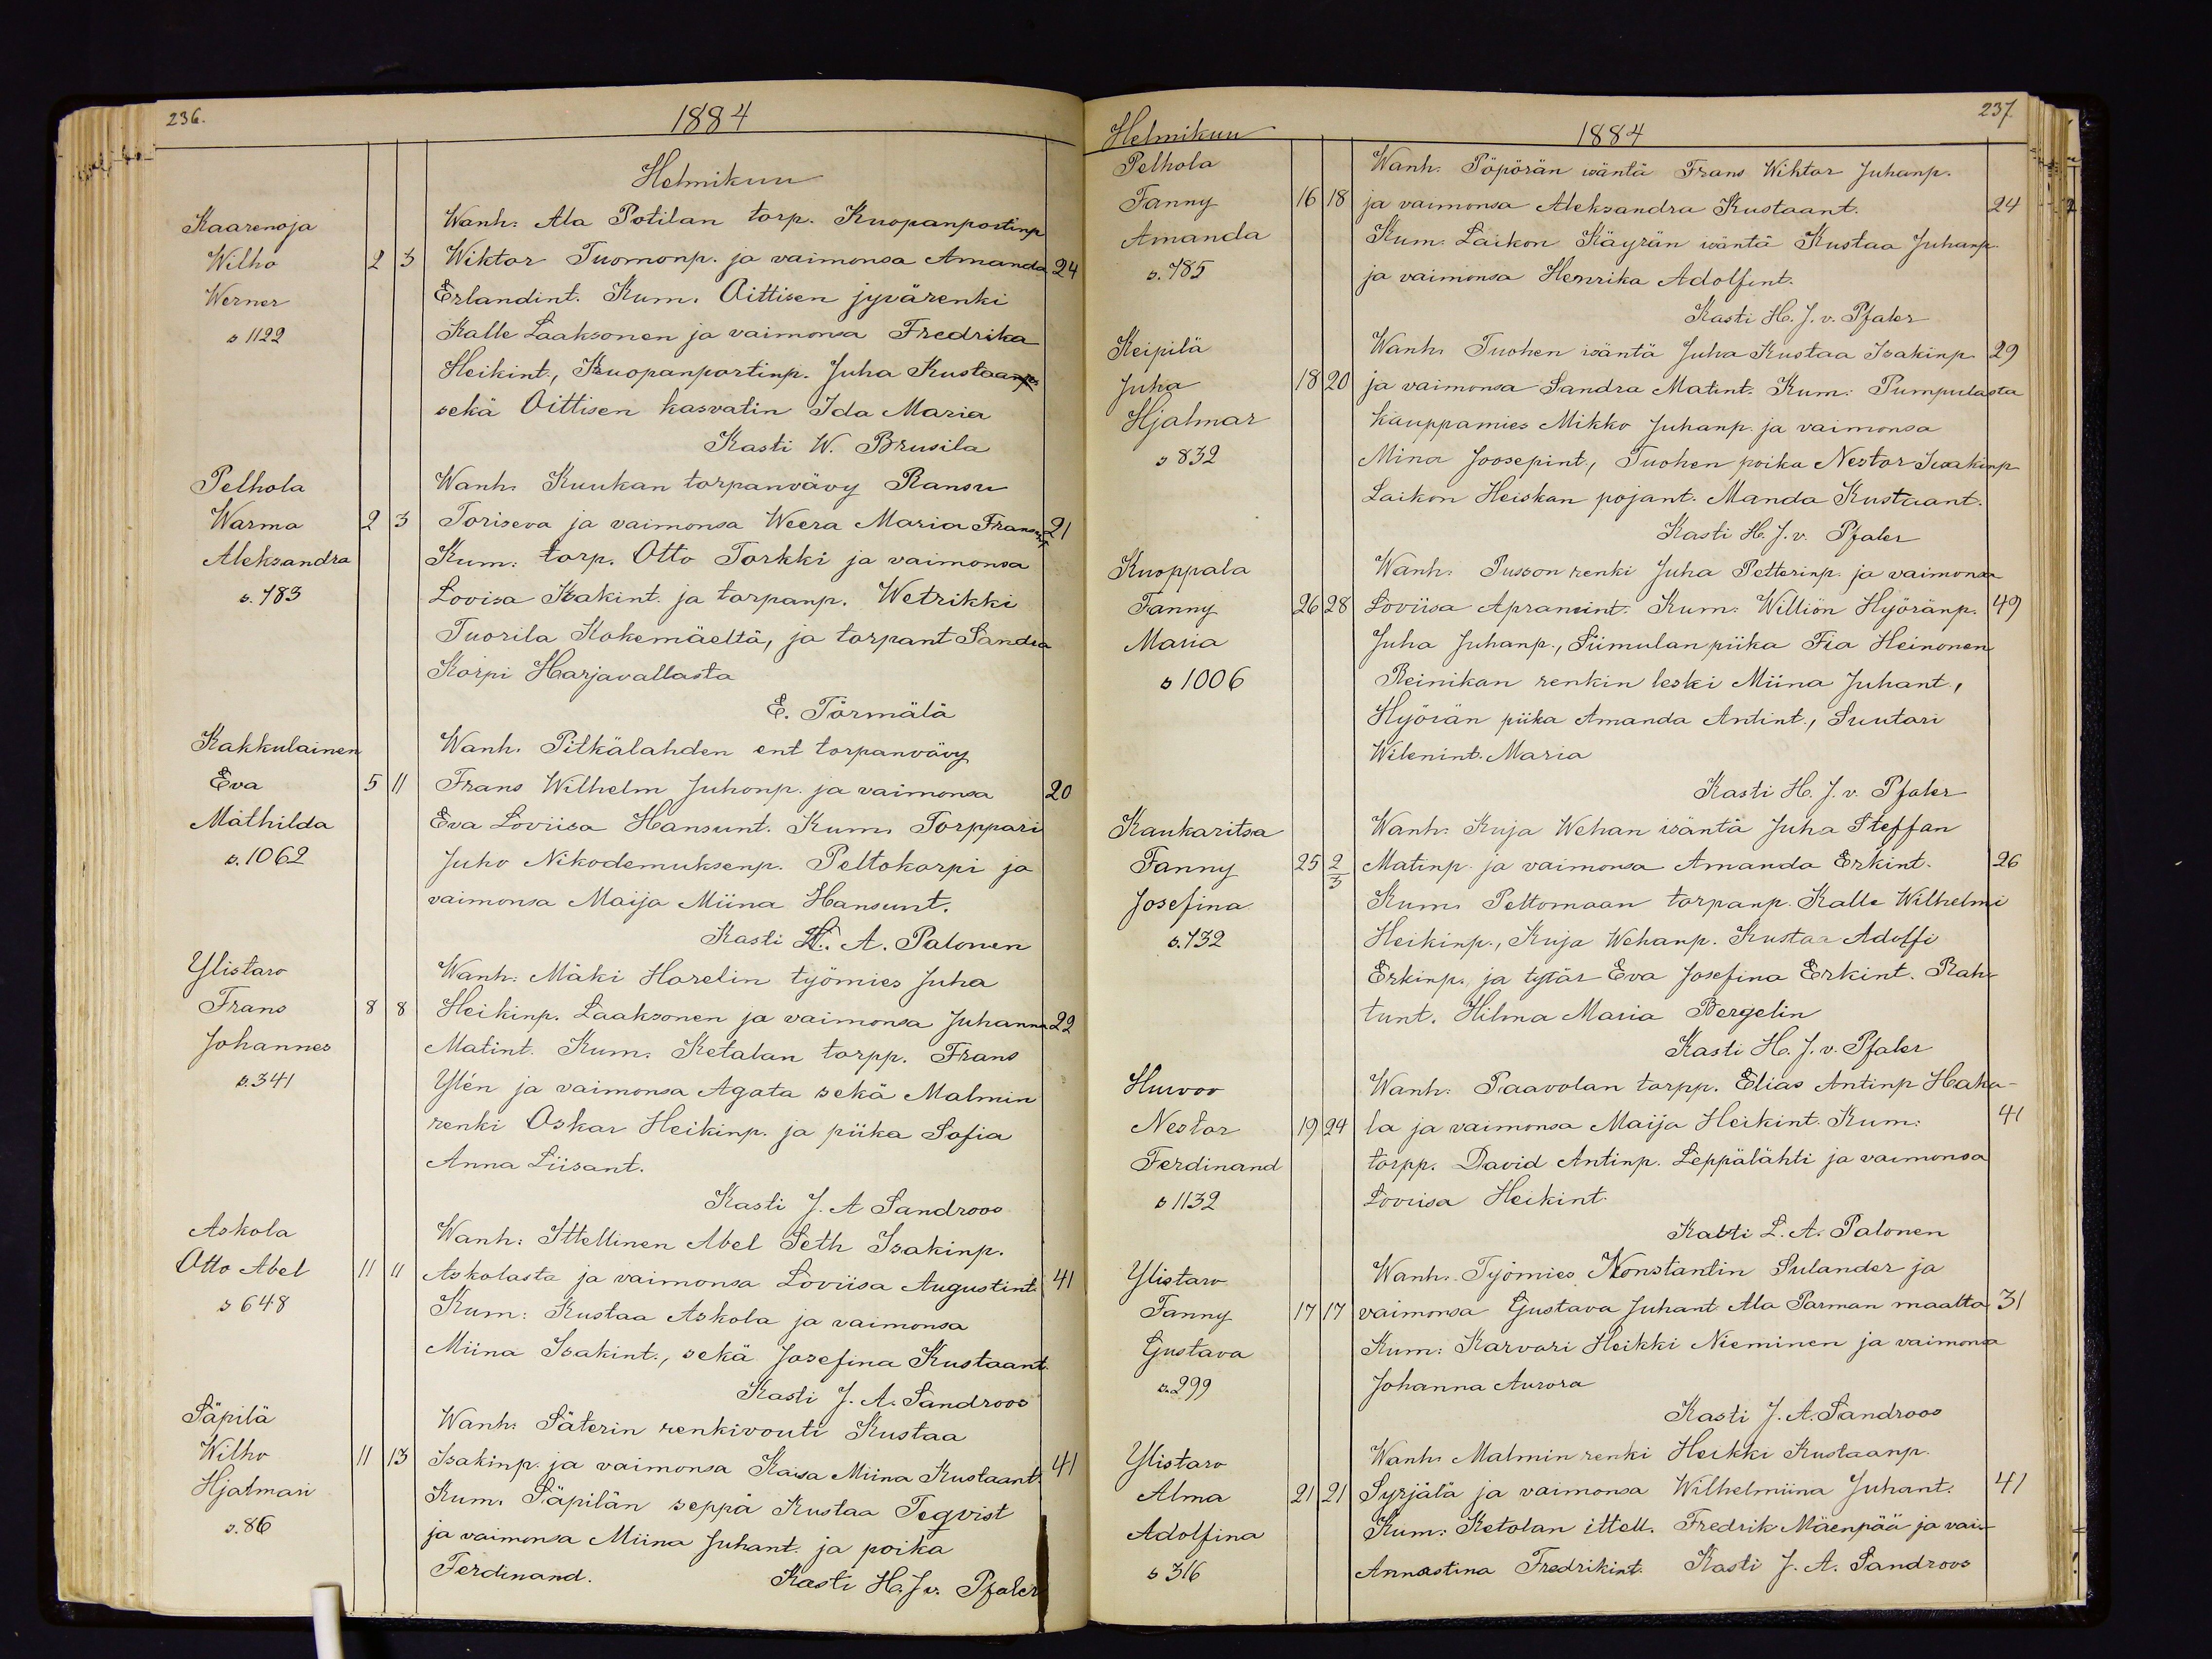 236.
1884
Helmikuu
Kaarenoja
Wanh. Ala Potilan torp. Kuopanportinp
Wilho 2 3 Wiktor Tuomonp. ja vaimonsa Amanda 24
Werner Erlandint. Kum. Oittisen jyvärenki
s 1122 Kalle Laaksonen ja vaimonsa Fredrika
Heikint., Kuopanportinp. Juha Kustaanp.
sekä Oittisen kasvatin Ida Maria
Kasti W. Brusila
Pelhola Wanh. Kuukan torpanvävy Ransu
Warma 2 3 Toriseva ja vaimonsa Weera Maria Fransunt 21
Aleksandra Kum: torp. Otto Torkki ja vaimonsa
s. 783 Lovisa Isakint. ja torpanp. Wetrikki
Tuorila Kokemäeltä, ja torpant Sandra
Korpi Harjavallasta
E. Törmälä
Kakkulainen Wanh. Pitkälahden ent torpanvävy
Eva 5 11 Frans Wilhelm Juhonp. ja vaimonsa 20
Mathilda Eva Loviisa Hansunt. Kum. Torppari
s. 1062 Juho Nikodemuksenp. Peltokorpi ja
vaimonsa Maija Miina Hansunt.
Kasti L. A. Palonen
Ylistaro Wanh. Mäki Horelin työmies Juha
Frans 8 8 Heikinp. Laaksonen ja vaimonsa Juhanna 22
Johannes Matint. Kum. Ketalan torpp. Frans
s. 341 Ylén ja vaimonsa Agata sekä Malmin
renki Oskar Heikinp. ja piika Sofia
Anna Liisant.
Kasti J. A Sandroos
Askola Wanh: Ittellinen Abel Seth Isakinp.
Otto Abel 11 11 Askolasta ja vaimonsa Loviisa Augustint. 41
s 648 Kum: Kustaa Askola ja vaimonsa
Miina Isakint., sekä Josefina Kustaant.
Kasti J. A. Sandroos
Säpilä Wanh: Säterin renkivouti Kustaa
Wilho 11 13 Isakinp. ja vaimonsa Kaisa Miina Kustaant. 41
Hjalmari Kum. Säpilän seppä Kustaa Tegvist
s. 86 ja vaimonsa Miina Juhant. ja poika
Ferdinand. Kasti H. J v. Pfaler
237.
Helmikuu 1884
Pelhola Wanh. Pöpörän isäntä Frans Wihtor Juhanp.
Fanny 16 18 ja vaimonsa Aleksandra Kustaant. 24
Amanda Kum. Laikon Käyrän isäntä Kustaa Juhanp.
s. 785 ja vaimonsa Henrika Adolfint.
Kasti H. J. v. Pfaler
Keipilä Wanh. Tuohen isäntä Juha Kustaa Isakinp. 29
Juha 18 20 ja vaimonsa Sandra Matint. Kum: Pumpulasta
Hjalmar kauppamies Mikko Juhanp. ja vaimonsa
s 832 Mina Joosepint., Tuohen poika Nestor Isaakinp
Laikon Heiskan pojant. Manda Kustaant.
Kasti H. J. v. Pfaler
Kuoppala Wanh. Pusson renki Juha Petterinp. ja vaimonsa
Fanny 26 28 Loviisa Apramint. Kum: Williön Hyöränp. 49
Maria Juha Juhanp., Siimulan piika Fia Heinonen
s 1006 Reinikan renkin leski Miina Juhant,
Hyörän piika Amanda Antint., Suutari
Wilenint. Maria
Kasti H. J. v. Pfaler
Kaukaritsa Wanh. Kuja Wehan isäntä Juha Steffan
Fanny 25 2/3 Matinp. ja vaimonsa Amanda Erkint. 26
Josefina Kum. Peltomaan torpanp. Kalle Wilhelmi
s. 132 Heikinp., Kuja Wehanp. Kustaa Adolfi
Erkinp. ja tytär Eva Josefina Erkint. Rah-
tunt. Hilma Maria Bergelin
Kasti H. J. v. Pfaler
Huovoo Wanh. Paavolan torpp. Elias Antinp Haka-
Nestor 19 24 la ja vaimonsa Maija Heikint. Kum: 41
Ferdinand torpp. David Antinp. Leppälähti ja vaimonsa
s 1132 Loviisa Heikint.
Kasti L. A. Palonen
Ylistaro Wanh. Työmies Konstantin Sulander ja
Fanny 17 17 vaimonsa Gustava Juhant Ala Parman maalta 31
Gustava Kum: Karvari Heikki Nieminen ja vaimonsa
s. 299 Johanna Aurora
Kasti J. A. Sandroos
Ylistaro Wanh. Malmin renki Heikki Kustaanp.
Alma 21 21 Syrjälä ja vaimonsa Wilhelmiina Juhant. 41
Adolfina Kum: Ketolan ittell. Fredrik Mäenpää ja vai-
s 316 Annastina Fredrikint. Kasti J. A. Sandroos